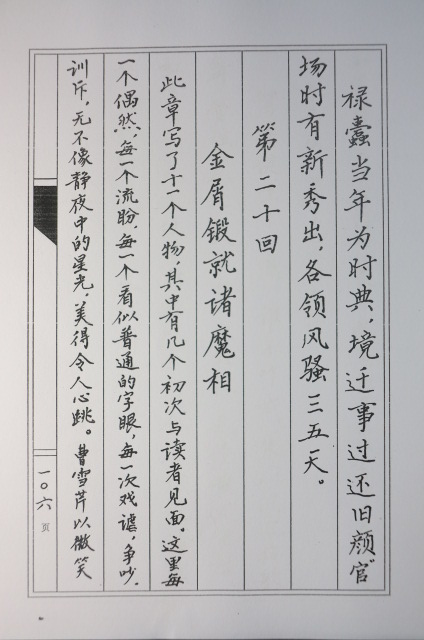 禄蠹当年为时典，境迁事过还旧颜。官
场时有新秀出，各领风骚三五天。
第二十回
金屑锻就诸魔相
此章写了十一个人物，其中有几个初次与读者见面。这里每
一个偶然，每一个流盼，每一个看似普通的字眼，每一次戏谑，争吵，
训斥，无不像静夜中的星光，美得令人心跳。曹雪芹以微笑
一〇六页